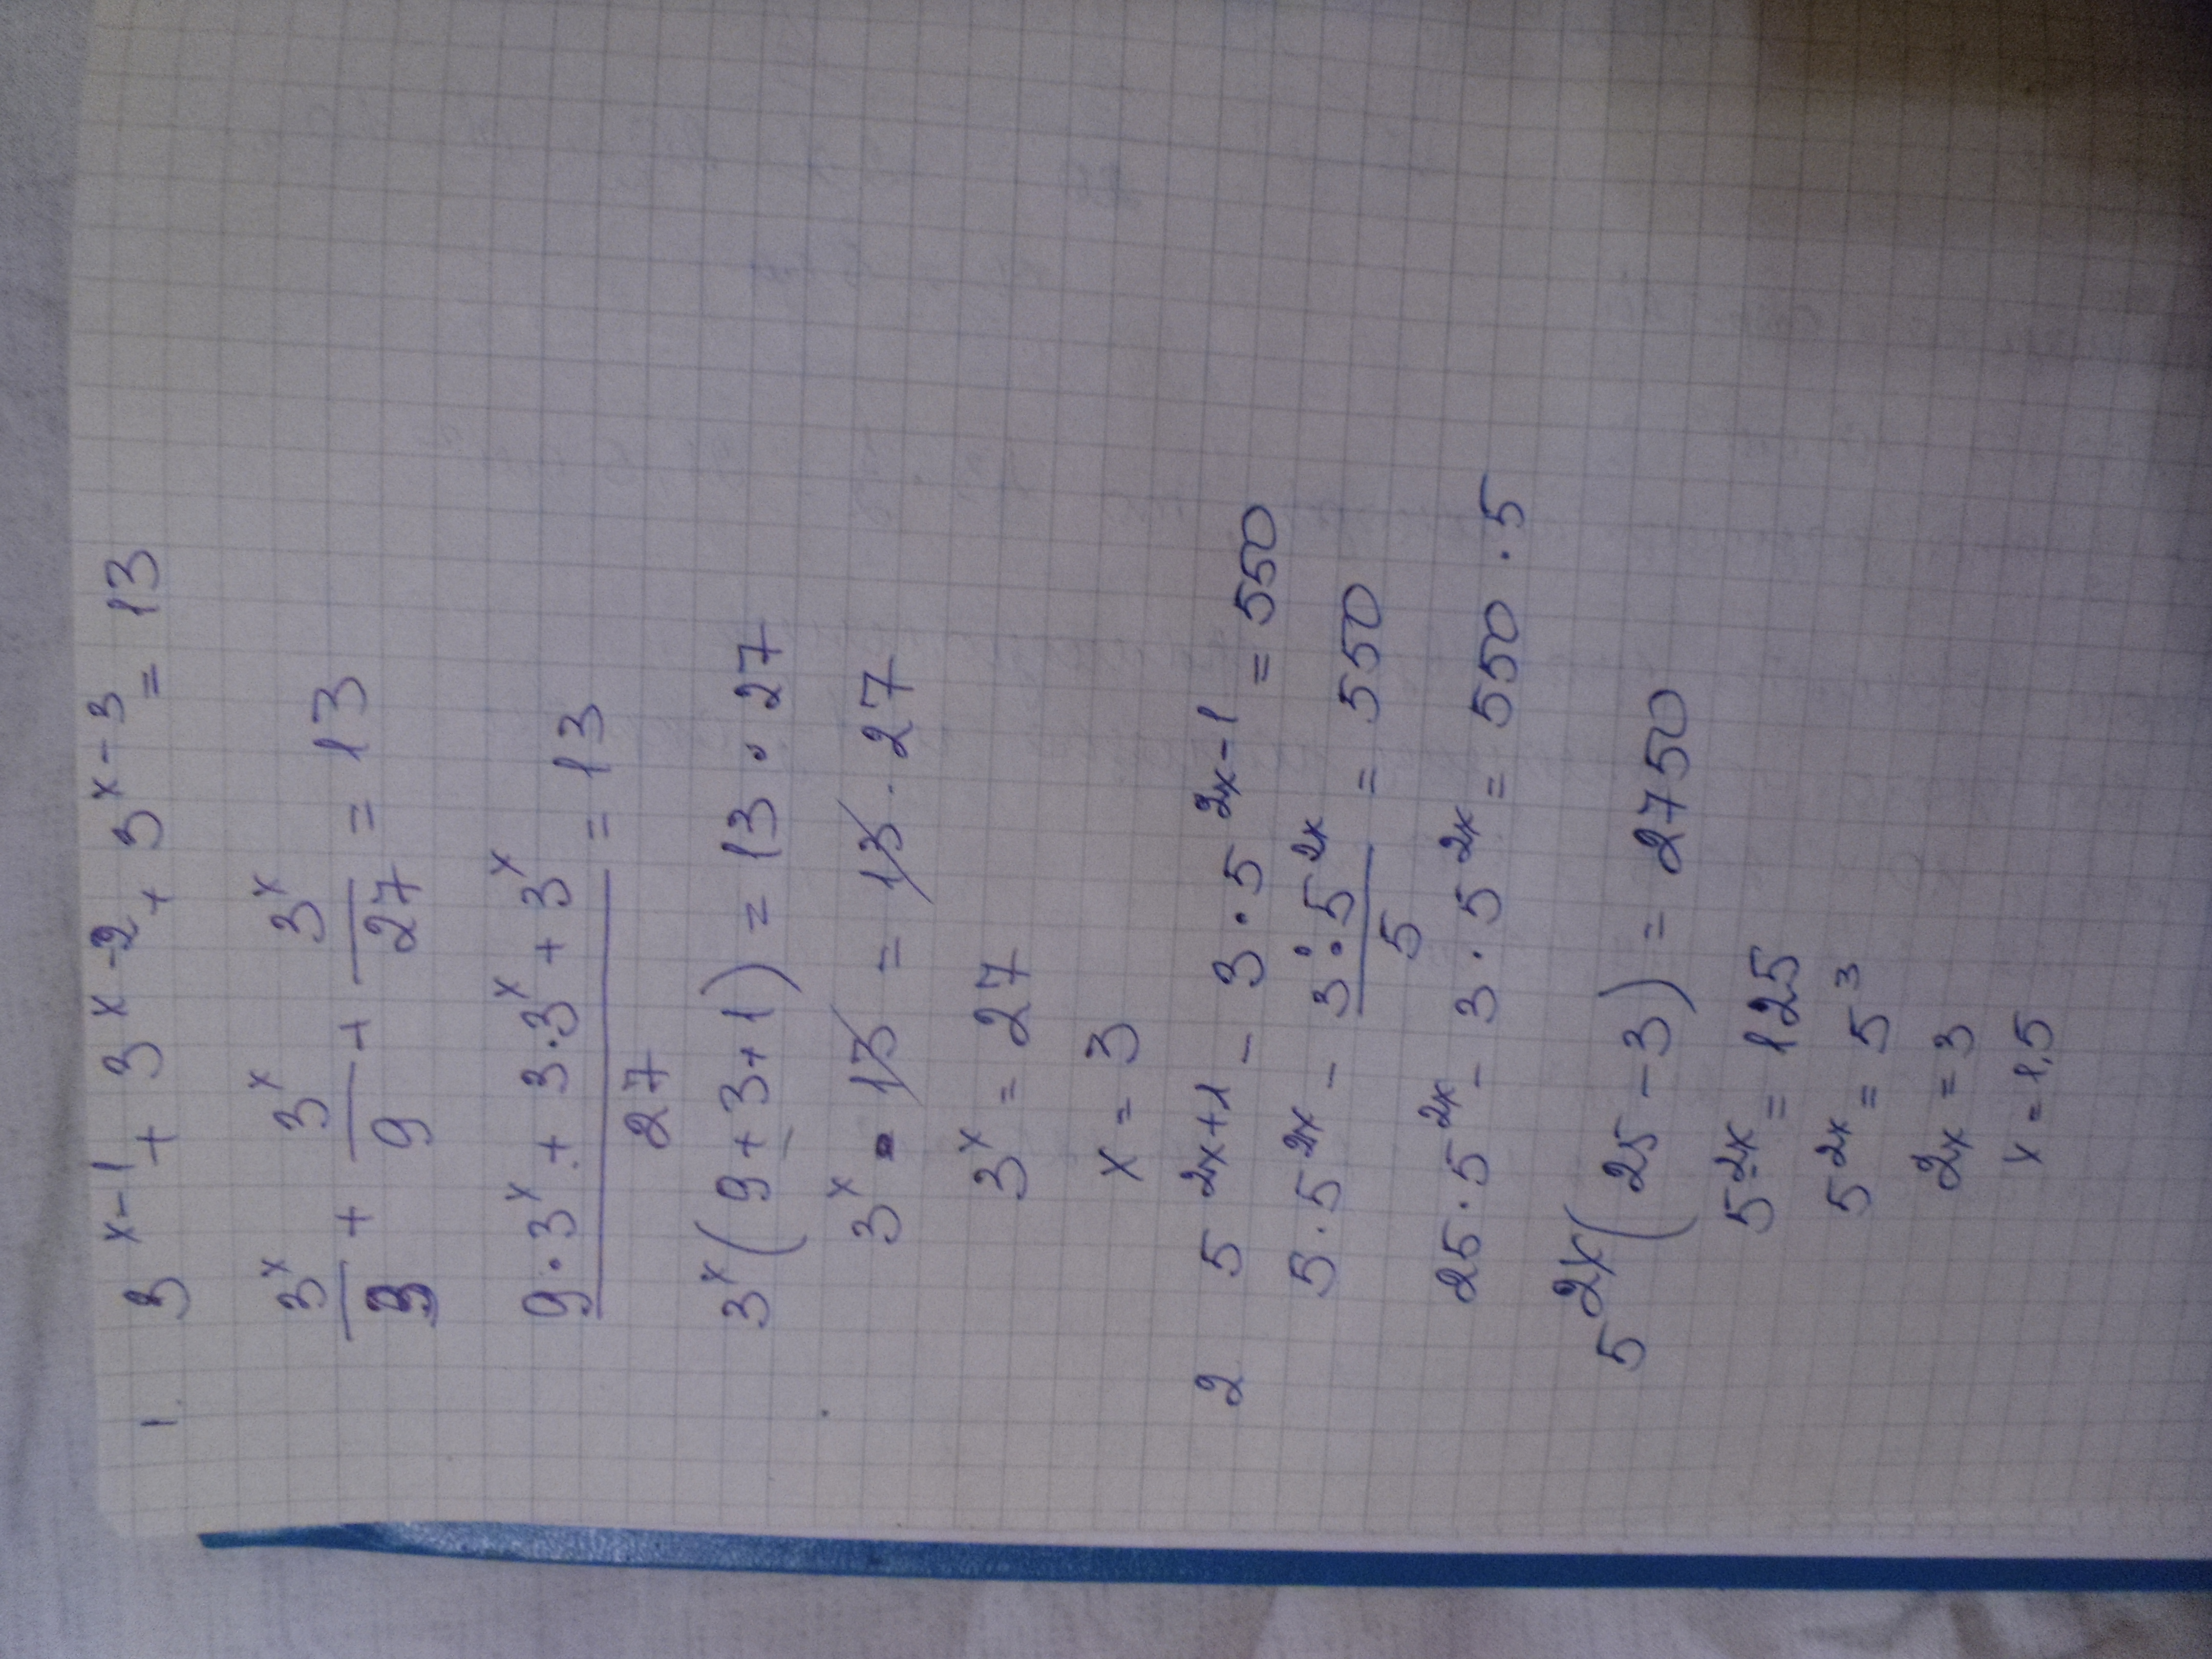 1. 3^{x-1} + 3^{x-2} + 3^{x-3} = 13
\frac{3^x}{3} + \frac{3^x}{9} + \frac{3^x}{27} = 13
\frac{9·3^x + 3·3^x + 3^x}{27} = 13
3^x(9+3+1) = 13·27
3^x · 13 = 13·27
3^x = 27
x = 3
2 5^{2x+1} - 3·5^{2x-1} = 550
5·5^{2x} - \frac{3·5^{2x}}{5} = 550
25·5^{2x} - 3·5^{2x} = 550·5
5^{2x}(25-3) = 2750
5^{2x} = 125
5^{2x} = 5^3
2x = 3
x = 1,5